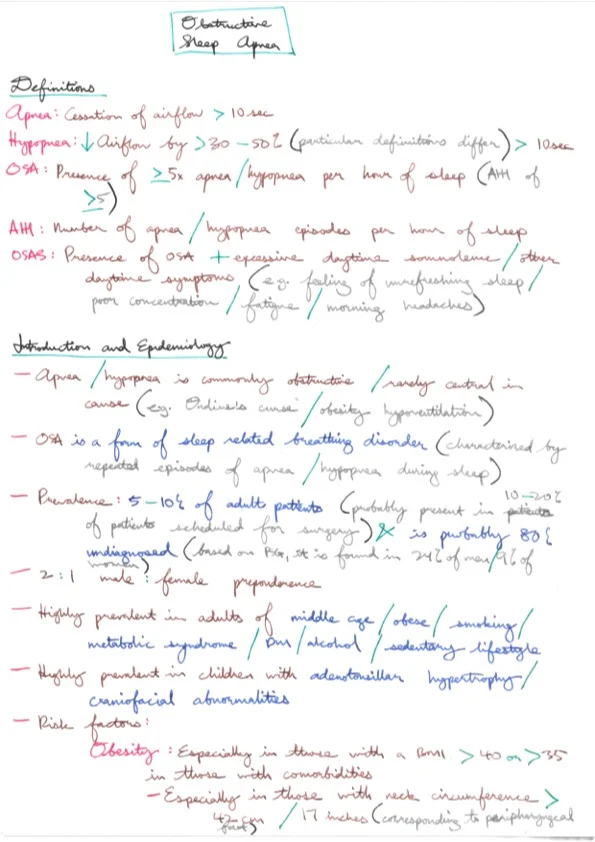 Obstructive
Sleep Apnea
Definitions
Apnea: Cessation of airflow > 10 sec
Hypopnea: ↓ Airflow by >30 - 50% (particular definitions differ) > 10 sec
OSA: Presence of ≥5x apnea/hypopnea per hour of sleep (AHI of
≥5)
AHI: Number of apnea/hypopnea episodes per hour of sleep
OSAS: Presence of OSA + excessive daytime somnolence/other
daytime symptoms (e.g. feeling of unrefreshing sleep/
poor concentration/fatigue/morning headaches)
Introduction and Epidemiology
- Apnea/hypopnea is commonly obstructive/rarely central in
cause (eg. Ondine's curse/obesity hypoventilation)
- OSA is a form of sleep related breathing disorder (characterized by
repeated episodes of apnea/hypopnea during sleep)
- Prevalence: 5-10% of adult patients (probably present in 10-20%
of patients scheduled for surgery) & is probably 80%
undiagnosed (based on PSG, it is found in 24% of men/9% of
women)
- 2:1 male: female preponderence
- Highly prevalent in adults of middle age/obese/smoking/
metabolic syndrome/DM/alcohol/sedentary lifestyle
- Highly prevalent in children with adenotonsillar hypertrophy/
craniofacial abnormalities
- Risk factors:
Obesity: Especially in those with a BMI >40 or >35
in those with comorbidities
- Especially in those with neck circumference >
42 cm/17 inches (corresponding to peripharyngeal
fat)